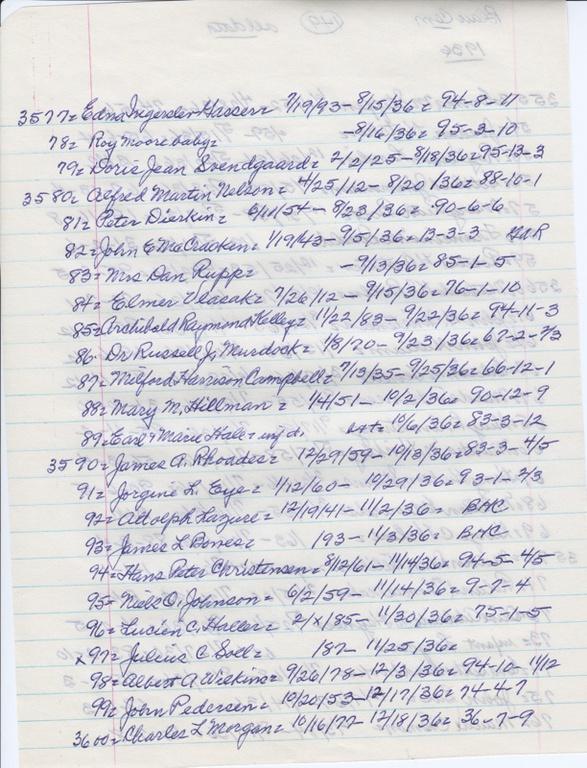 3577= Edna Ingersler Hasser= 7/19/93- 8/15/36= 94-8-11
78= Roy Moore baby= -8/16/36= 95-3-10
79= Doris Jean Svendgaard= 2/2/25-8/18/36=95-13-3
3580= Alfred Martin Nelson= 4/25/12-8/20/36=88-10-1
81= Peter Dierkin= 6/11/54-8/23/36= 90-6-6
82= John E McCracken= 1/19/43-9/5/36=13-3-3 GAR
83= Mrs Dan Rupp= -9/13/36=85-1-5
84= Elmer Vlasak= 7/26/12- 9/15/36=76-1-10
85=Archibald Raymond Kelley= 11/22/83-9/22/36= 94-11-3
86. Dr Russell J. Murdock= 1/8/70-9/23/36=67-2-2/3
87= Milford Harrison Campbell= 7/13/35-9/25/36=66-12-1
88= Mary M. Hillman= 1/4/51- 10/2/36= 90-12-9
89= Earl & Marie Hale= inf d. 10/6/36=83-3-12
3590= James A. Rhoades= 12/29/59-10/13/36=83-3-4/5
91= Jorgine L. Eye= 1/12/60- 10/29/36= 93-1-2/3
92= Adolph Lazure= 12/19/41-11/2/36= BHC
93= James L Bones= 193-11/3/36= BHC
94= Hans Peter Christensen= 8/12/61-11/14/36= 94-5-4/5
95= Niels O. Johnson= 6/2/59- 11/14/36= 9-7-4
96= Lucien C. Haller= 2/x/85-11/30/36= 75-1-5
x 97= Julius C Soll= 187- 11/25/36=
98= Albert A Wilkins= 9/26/78-12/3/36= 94-10-11/12
99= John Pedersen= 10/20/53-12/17/36= 74-4-7
3600= Charles L Morgan= 10/16/77-12/18/36= 36-7-9